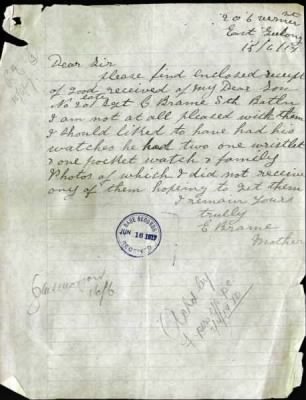 206 Verner st
East Geelong
15/6/17
Dear Sir
please find enclosed receipt
of Good received of My Dear Son
late
No 201 Sgt C Brame 8th Battln
I am not at all pleased with them
I should liked to have had his
watches he had two one wristlet
& one pocket watch & family
Photos of which I did not receive
any of them hoping to get them
I remain yours
truly
E Brame
Mother
BASE RECORDS
JUN 18 1917
RECEIVED
16/6